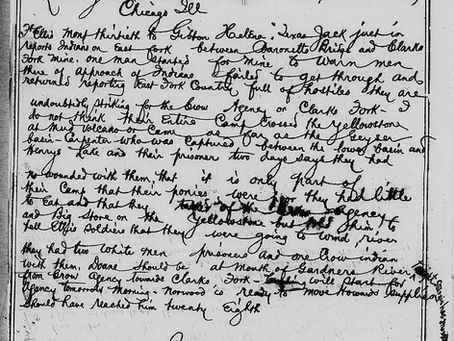 Chicago Ill
Ft Ellis Mont thirtieth to Gibbon Helena "Texas Jack just in
reports Indians on East Fork between Baronetts Bridge and Clarks
Fork Mine. One man started for Mine to warn men
there of approach of Indians failed to get through and
returned reporting East Fork Country full of hostiles they are
undoubtedly striking for the Crow Agency or Clarks Fork - I
do not think their Entire Camp crossed the Yellowstone
at Mud Volcano or Came as far as the Geyser
basin - Carpenter who was captured between the lower basin and
Henrys Lake and their prisoner two days says they had
no wounded with them, that it is only part of
their Camp that their ponies were they had little
to Eat and that they of the Agency
and Big Store on the Yellowstone but told him to
tell Ellis Soldiers that they were going to Wind river
they had two white men prisoners and one Crow indian
with them. Doane should be at Mouth of Gardners River
from Crow Agency towards Clarks Fork - will start for
Agency tomorrow morning - Norwood is ready to move towards
should have reached him twenty Eighth